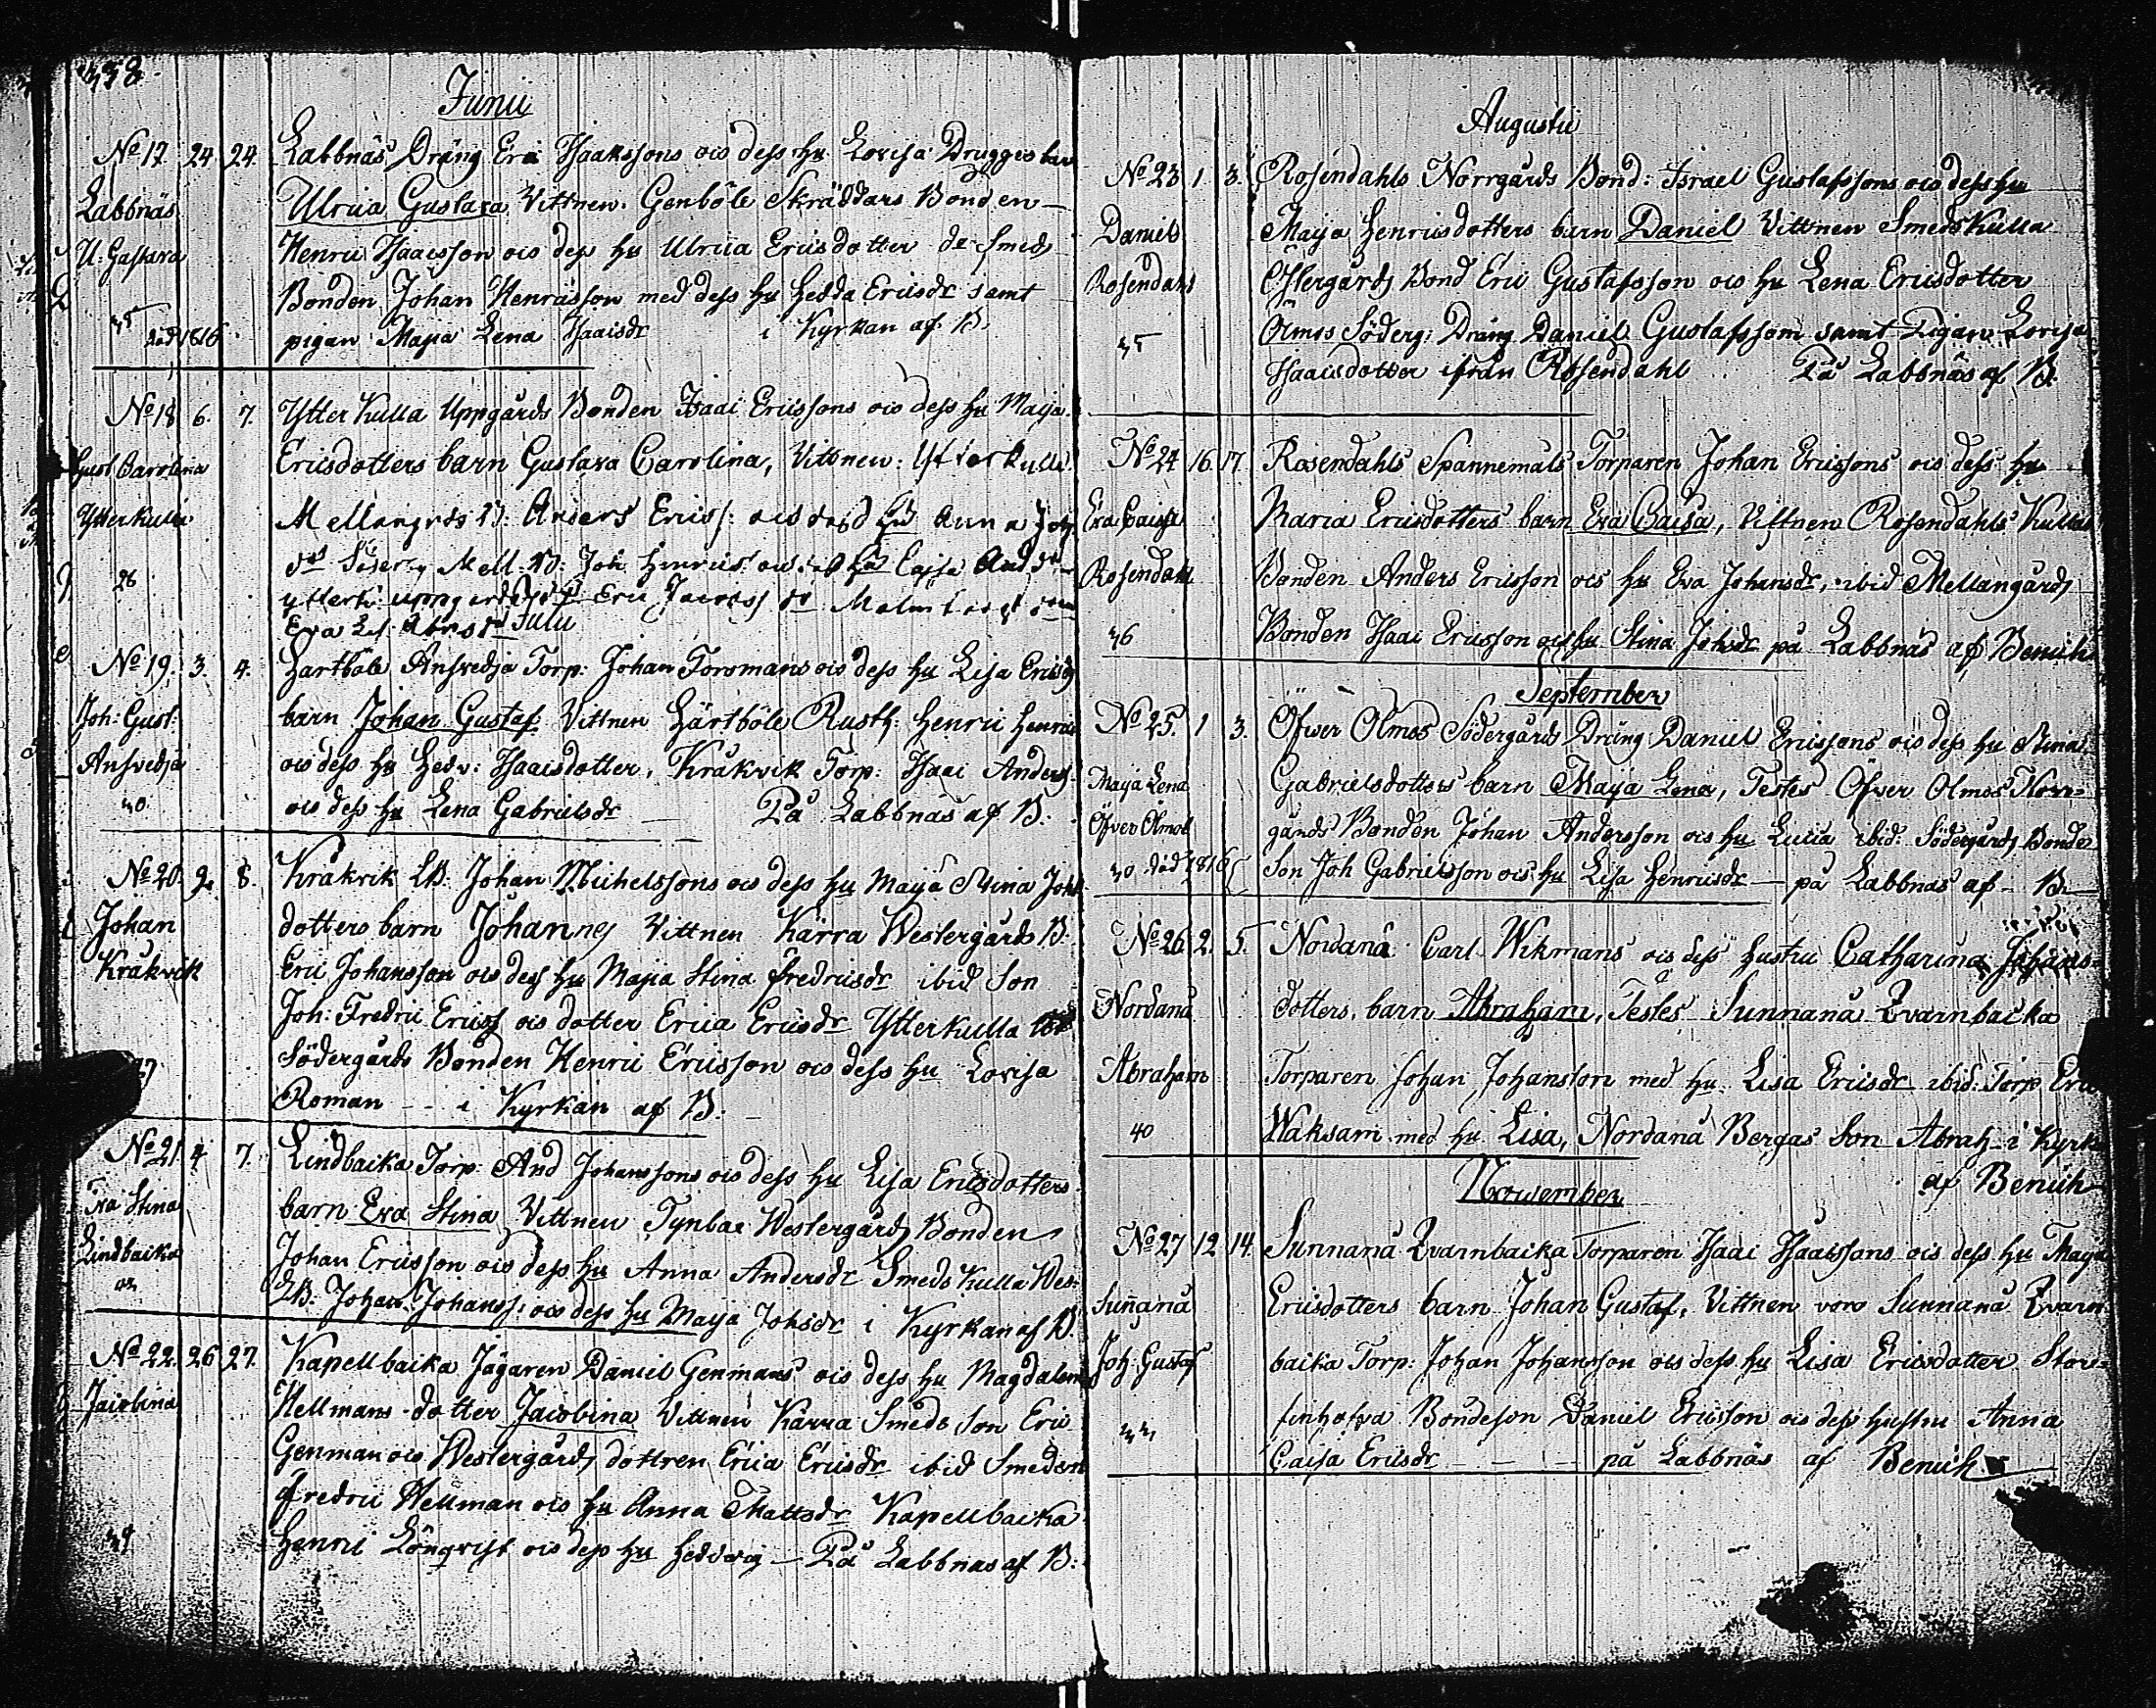 338.
Junii
No 17. 24. 24. Labbnäs Dräng Eric Isaakssons ocs dess hu Lovisa Drugges barn
Labbnäs Ulrica Gustava Vittnen. Genböle Skräddars Bonden
U: Gustava Henric Isacsson ocs dess hu Ulrica Ericsdotter de Smeds
Bonden Johan Henricsson med dess hu Hedda Ericsdr samt
35 död 1816 pigan Maja Lena Isaacsdr i Kyrkan af B.
No 18 6. 7. Ytter Kulla Uppgårds Bonden Isaac Ericssons ocs dess hu Maija
Gust Carolina Ericsdotters barn Gustava Carolina, Vittnen: Ytterkulla
Ytterkulla Mellangrds B: Anders Ericss: ocs dess hu Anna Joh
26 dr Söderg Mell: B: Joh Henrics ocs hu Cajsa And dr
ytterk uppgårds Eric Jacobss
Eva Lis
Julii
No 19. 3. 4. Hartböle Ansvedja Torp: Johan Forsmans ocs dess hu Lisa Ericsd
Joh: Gust: barn Johan Gustaf Vittnen Härtböle Rusth: Henric Henrics
Ansvedja ocs dess hu Hedv: Isaacsdotter, Kråkvik Torp: Isaac Anders
30 ocs dess hu Lena Gabrielsdr På Labbnäs af B:
No 20. 2. 8. Kråkvik LB: Johan Michelssons ocs dess hu Maija Stina Joh
Johan dotters barn Johannes Vittnen Kärra Westergårds B:
Kråkvik Eric Johansson ocs dess hu Maja Stina Fredricsdr ibid Son
Joh: Fredric Ericss ocs dotter Erica Ericsdr Ytterkulla
27 Södergårds Bonden Henric Ericsson ocs dess hu Lovisa
Roman i Kyrkan af B:
No 21. 4. 7. Lindbacka Torp: And Johanssons ocs dess hu Lisa Ericsdotters
Eva Stina barn Eva Stina Vittnen Tynbac Westergårds Bonden
Lindbacka Johan Ericsson ocs dess hu Anna Andersdr Smeds Kulla Wes:
LB: Johan Johanss: ocs dess hu Maya Johsdr i Kyrkan af B.
No 22. 26. 27. Kapellbacka Jägaren Daniel Genmans ocs dess hu Magdalena
Jacobina Hellmans dotter Jacobina Vittnen Kärra Smeds Son Eric
Genman ocs Westergårds dottren Erica Ericsdr ibid Smeden
Fredric Hellman ocs hu Anna Mattsdr Kapellbacka
39 Henric Lönqvist ocs dess hu Hedvig På Labbnäs af B:
Augusti
No 23 1. 3. Rosendahls Norrgårds Bond: Israel Gustafssons ocs dess hu
Daniel Maija Henricsdotters barn Daniel Vittnen SmedsKulla
Rosendahl Östergårds Bond Eric Gustafsson ocs hu Lena Ericsdotter
35 Ölmos Söderg: Dräng Daniel Gustafsson samt Pigan Lovisa
Isaacsdotter ifrån Rosendahl På Labbnäs af B.
No 24 16. 17. Rosendahls Spannemäls Torparen Johan Ericssons ocs dess hu
Eva Caisa Maria Ericsdotters barn Eva Caisa, Vittnen Rosendahls Kulla
Rosendahl Bonden Anders Ericsson ocs hu Eva Johansdr, ibid Mellangårds
36 Bonden Isaac Ericsson ocs hu Stina Johsdr på Labbnäs af Benich
September
No 25. 1 3. Öfwer Ölmos Södergårds Dräng Daniel Ericssons ocs dess hu Stina
Maya Lena Gabrielsdotters barn Maya Lena, Testes Öfver Ölmos Norr=
Öfver Ölmos gårds Bonden Johan Andersson ocs hu Lucia ibid: Södergårds Bonde
30 död 1816 Son Joh Gabrielsson ocs hu Lisa Henricsdr på Labbnäs af B
No 26 2. 5. Nordanå Carl Wikmans ocs dess hustru Catharina Johans=
Nordanå dotters, barn Abraham, Testes Sunnanå Qvarnbacka
Abraham Torparen Johan Johansson med hu Lisa Ericsdr ibid: Torp: Eric
40 Waksam med hu Lisa, Nordanå Bergas Son Abrah i Kyrk
af Benich
November
No 27 12 14. Sunnanå Qvarnbacka Torparen Isaac Isaacssons ocs dess hu Maya
Sunnanå Ericsdotters barn Johan Gustaf, Vittnen voro Sunnanå Qvarn
Joh: Gustaf backa Torp: Johan Johansson ocs dess hu Lisa Ericsdotter Stor=
finhofva Bondeson Daniel Ericsson ocs dess hustru Anna
Caisa Ericsdr på Labbnäs af Benich